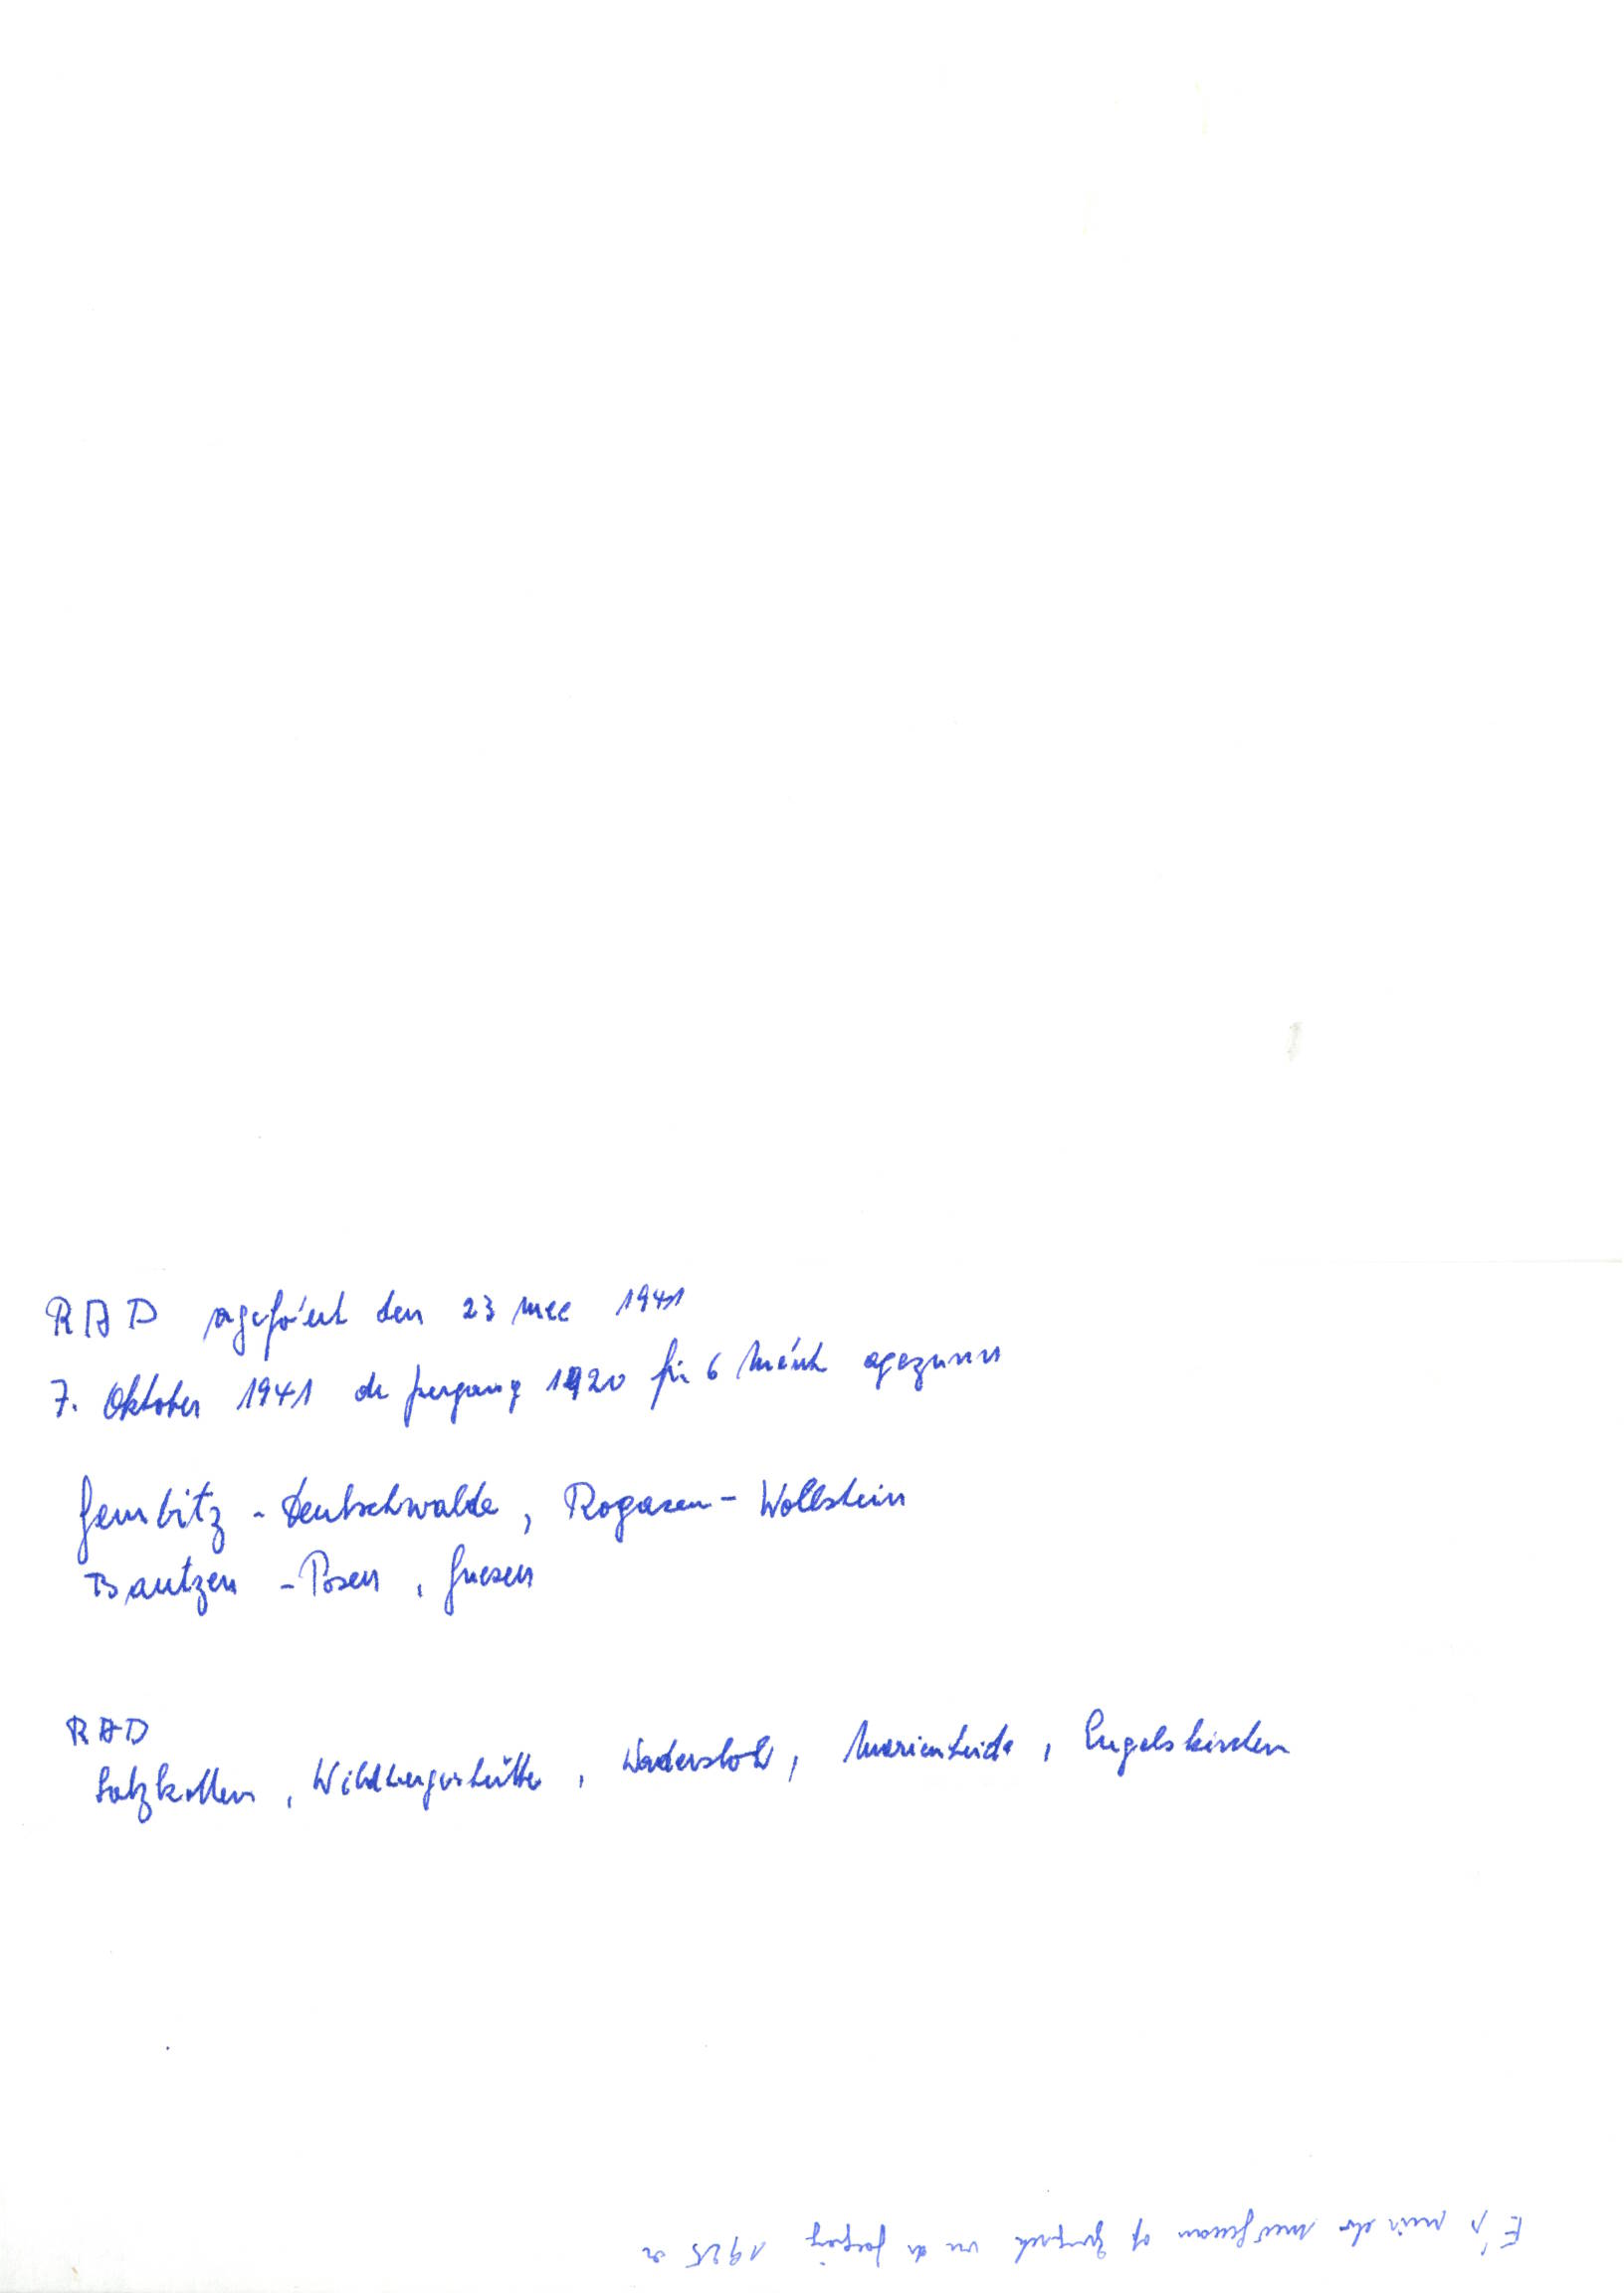 RAD agefouert den 23 mee 1941
7. Oktober 1941 de jorgang 1920 fir 6 Méint agezunn
Gembitz - Deutschwalde, Rogasen - Wollstein
Bautzen - Posen, Gnesen
RAD
Salzkotten, Wildbergerhütte, Wadersloh, Marienheide, Engelskirchen
1925